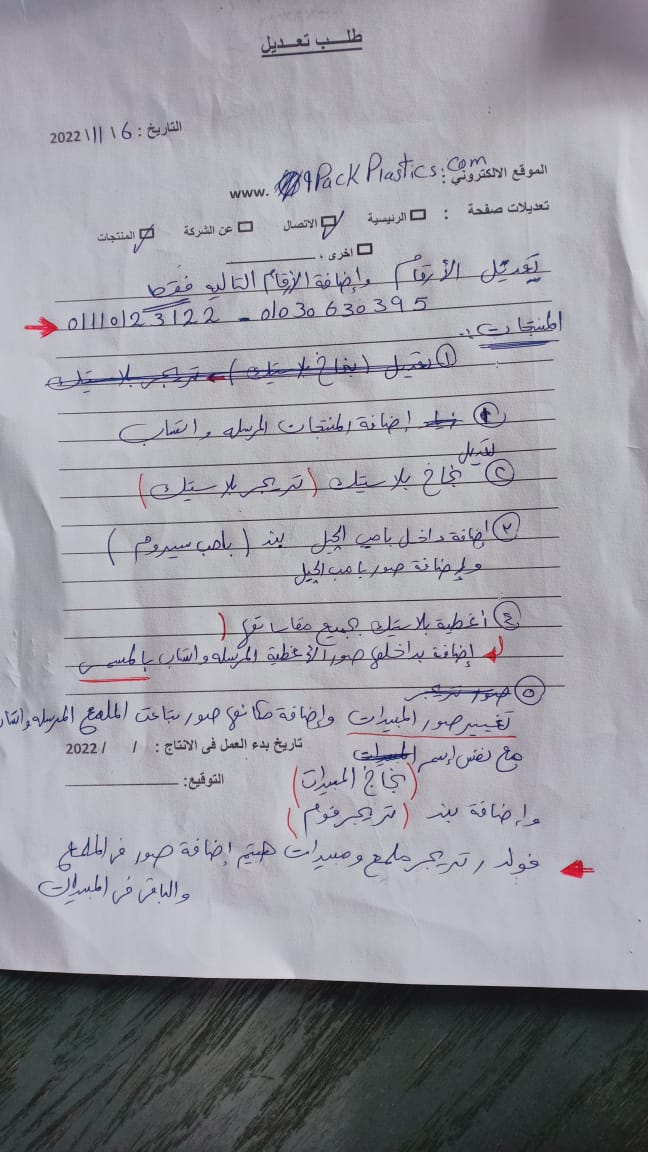 طلــب تعــديل
التاريخ : 16 \ 11 \ 2022
الموقع الالكتروني : www. 9PackPlastics.com
تعديلات صفحة : الرئيسية الاتصال عن الشركة المنتجات
اخرى :
تعديل الأرقام وإضافة الأرقام التاليه فقط
01110123122 - 01030630395
المنتجات :
① تعديل (بخاخ بلاستيك) تريجر بلاستيك
① إضافة المنتجات المرسله واتساب
تعديل
② بخاخ بلاستيك (تريجر بلاستيك)
③ إضافة داخل بامب الجيل بند (بامب سيروم)
وإضافة صور بامب الجيل
④ أغطية بلاستيك بجميع مقاساتها (
إضافة بداخلها صور الأغطية المرسله واتساب بالمسمى
⑤ صور تريجر
تغيير صور المبيدات وإضافة مكانها صور بتاعت الملمع المرسله واتساب
تاريخ بدء العمل فى الانتاج : / / 2022
مع نفس إسم المبيدات
(بخاخ المبيدات)
التوقيع:
وإضافة بند (تريجر فوم)
فولدر تريجر ملمع ومبيدات هيتم إضافة صور فى الملمع
والباقى فى المبيدات